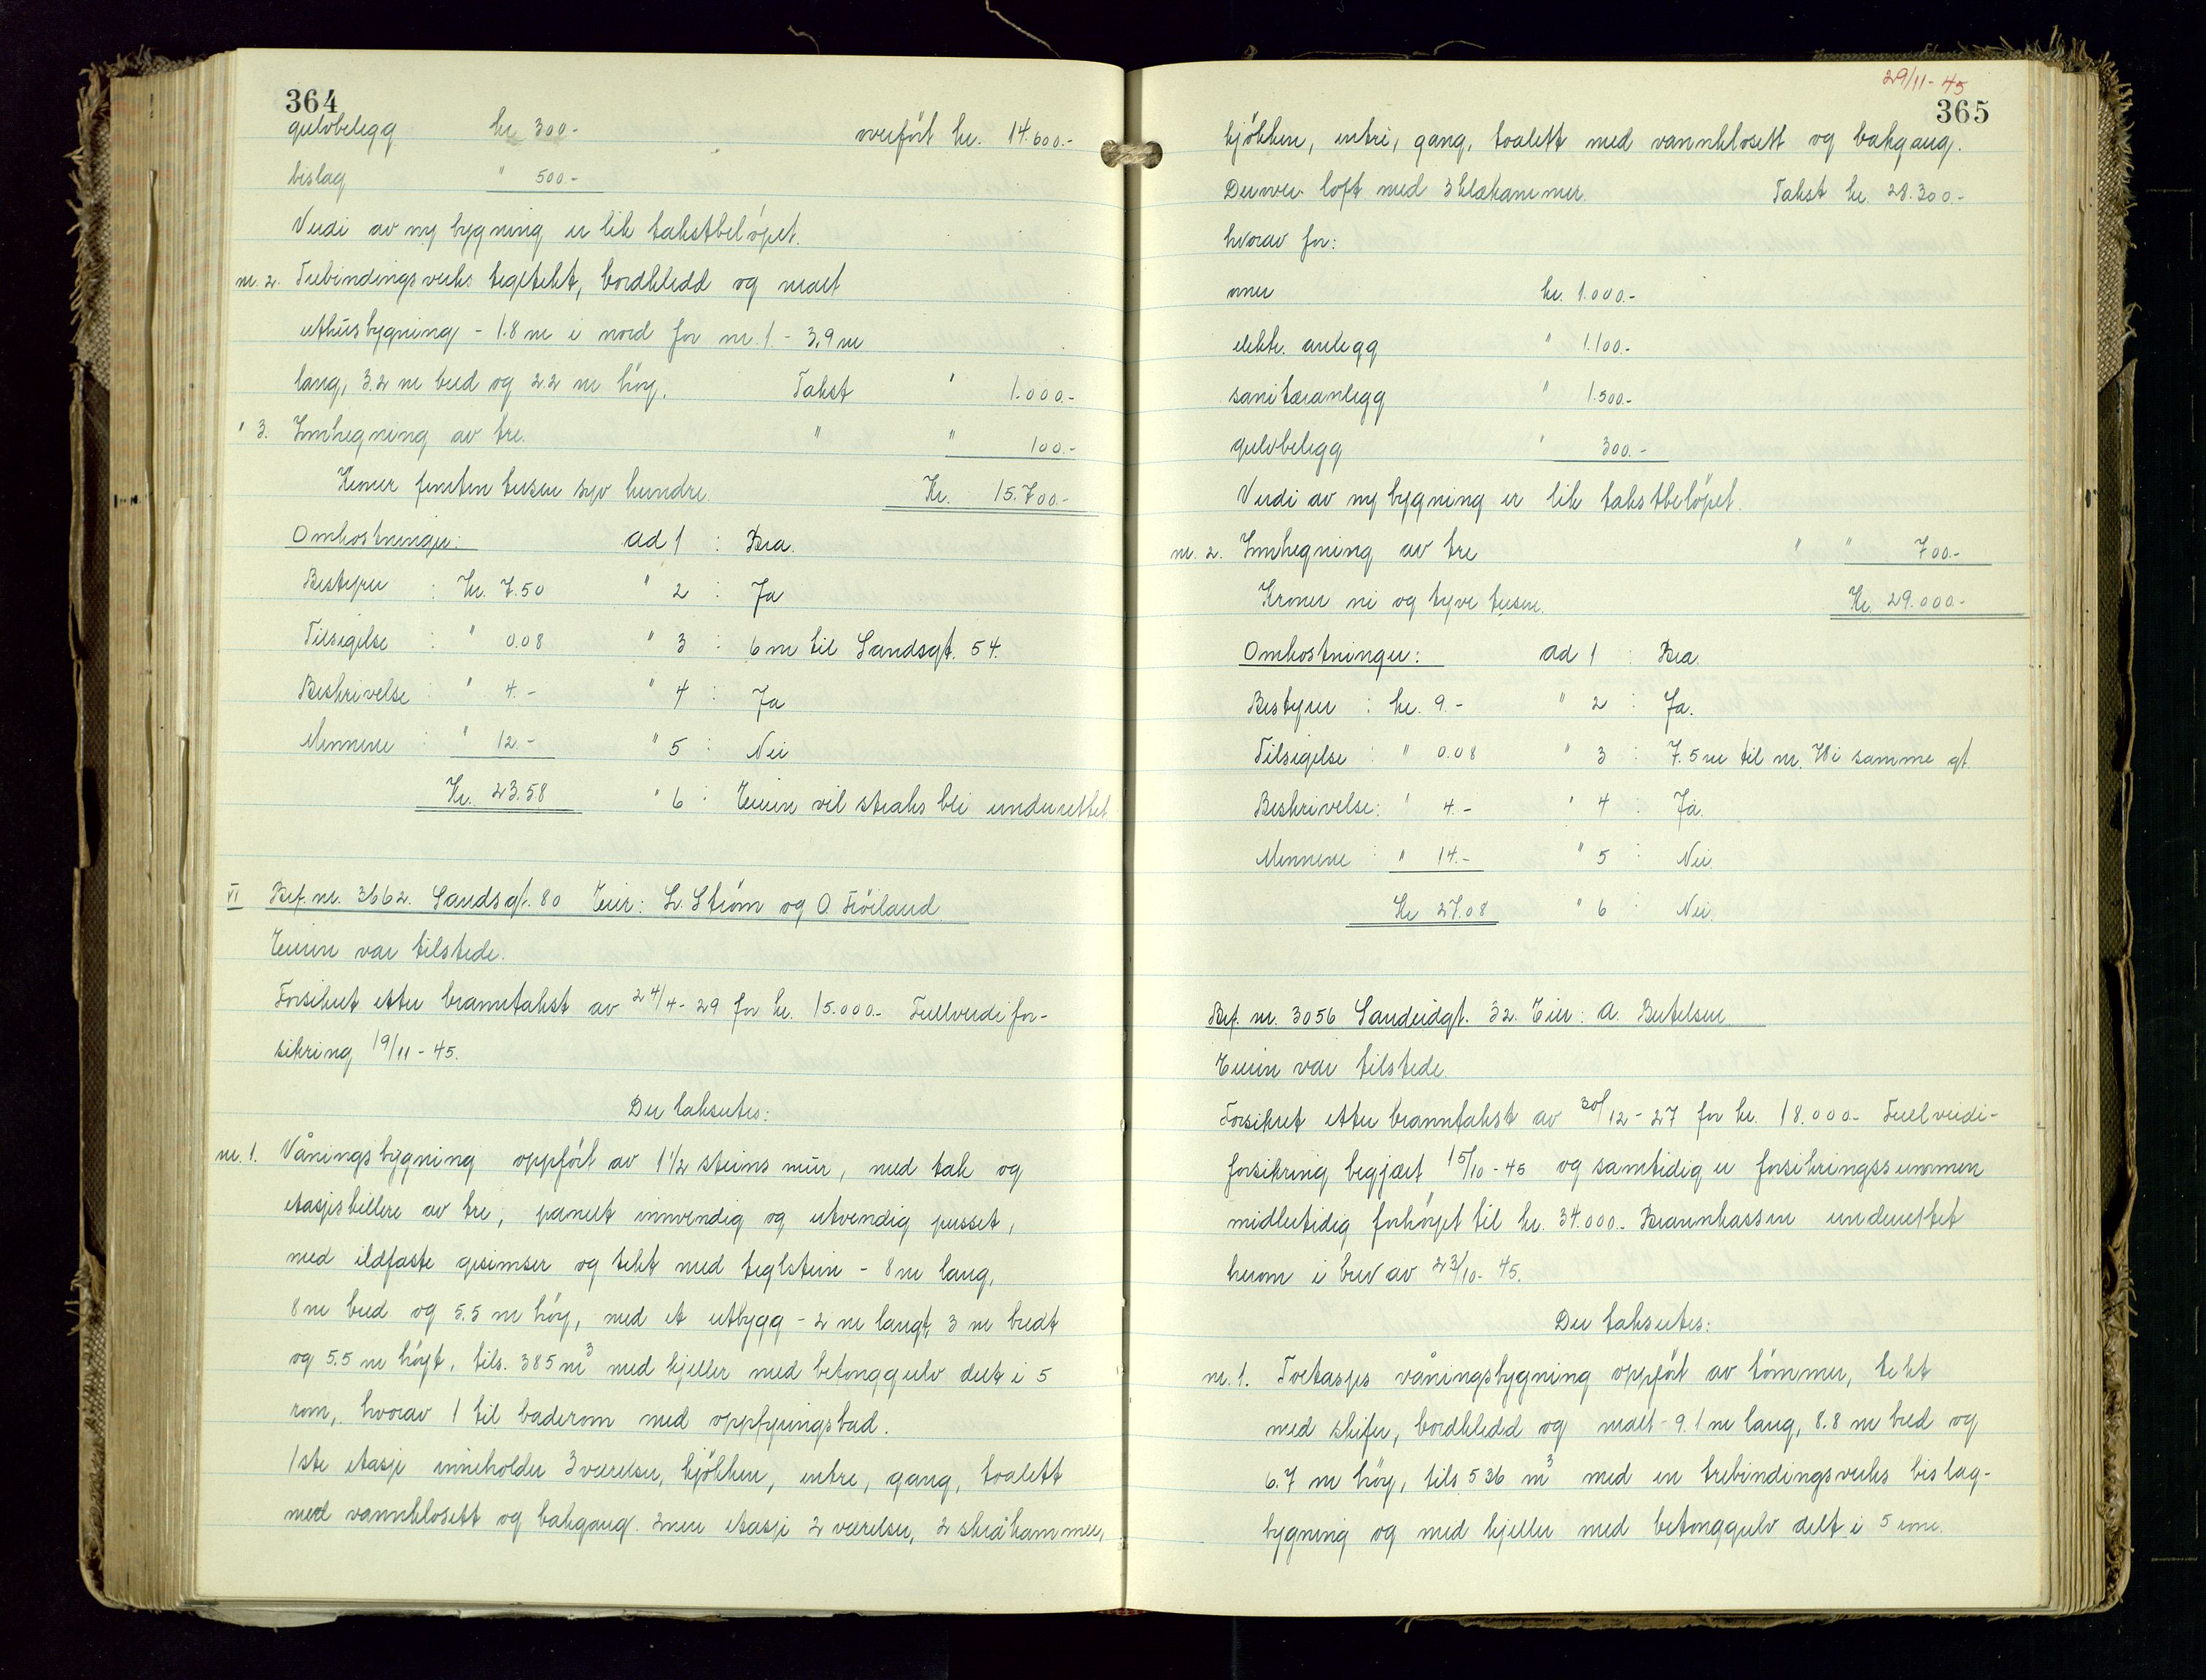 364
gulvbelegg kr. 300.- overført kr. 14.600.-
bislag " 500.-
Verdi av ny bygning er lik takstbeløpet.
nr. 2. Trebindingsverks teglteket, bordkledd og malt
uthusbygning - 1.8 m i nord for nr. 1. - 3.9 m
lang, 3.2 m bred og 2.2 m høy. Takst " 1.000.-
" 3. Innhegning av tre. " " 100.-
Kroner femten tusen syv hundre. Kr. 15.700.-
Omkostninger: ad 1 : Bra.
Bestyrer : Kr. 7.50 " 2 : Ja
Tilsigelse : " 0.08 " 3 : 6 m til Sandsgt. 54.
Beskrivelse : " 4.- " 4 : Ja
Mennene : " 12.- " 5 : Nei
Kr. 23.58 " 6 : Eieren vil straks bli underrettet.
VI Brf. nr. 3662. Sandsgt. 80 Eier: L. Strøm og O. Frøiland
Eieren var tilstede.
Forsikret etter branntakst av 24/4-29 for kr. 15.000.- Fullverdifor-
sikring 19/11-45.
Der takseres:
nr. 1. Våningsbygning oppført av 1 1/2 steins mur, med tak og
etasjeskillere av tre, panelt innvendig og utvendig pusset,
med ildfaste gesimser og tekt med teglstein - 8 m lang,
8 m bred og 5.5 m høy, med et utbygg - 2 m langt, 3 m bredt
og 5.5 m høyt, tils. 385 m3 med kjeller med betonggulv delt i 5
rom, hvorav 1 til baderom med oppfyringsbad.
1ste etasje inneholder 3 værelser, kjøkken, entre, gang, toalett
med vannklosett og bakgang. 2nen etasje 2 værelser, 2 skråkammer,
29/11-45
365
kjøkken, entre, gang, toalett med vannklosett og bakgang.
Derover loft med 3 kleskammer. Takst kr. 28.300.-
hvorav for:
ovner kr. 1.000.-
elektr. anlegg " 1.100.-
sanitæranlegg " 1.500.-
gulvbelegg " 300.-
Verdi av ny bygning er lik takstbeløpet.
nr. 2. Innhegning av tre " " 700.-
Kroner ni og tyve tusen. Kr. 29.000.-
Omkostninger: ad 1 : Bra.
Bestyrer : kr. 9.- " 2 : Ja.
Tilsigelse : " 0.08 " 3 : 7.5 m til nr. 78 i samme gt.
Beskrivelse: " 4.- " 4 : Ja.
Mennene : " 14.- " 5 : Nei.
Kr 27.08 " 6 : Nei.
Brf. nr. 3056 Sandeidgt. 32. Eier: A. Bertelsen
Eieren var tilstede.
Forsikret etter branntakst av 30/12-27 for kr. 18.000.- Fullverdi-
forsikring begjært 15/10-45 og samtidig er forsikringssummen
midlertidig forhøyet til kr. 34.000.- Brannkassen underrettet
herom i brev av 23/10-45.
Der takseres:
nr. 1. Toetasjes våningsbygning oppført av tømmer, tekt
med skifer, bordkledd og malt - 9.1 m lang, 8.8 m bred og
6.7 m høy, tils 536 m3 med en trebindingsverks bislag-
bygning og med kjeller med betonggulv delt i 5 rom.